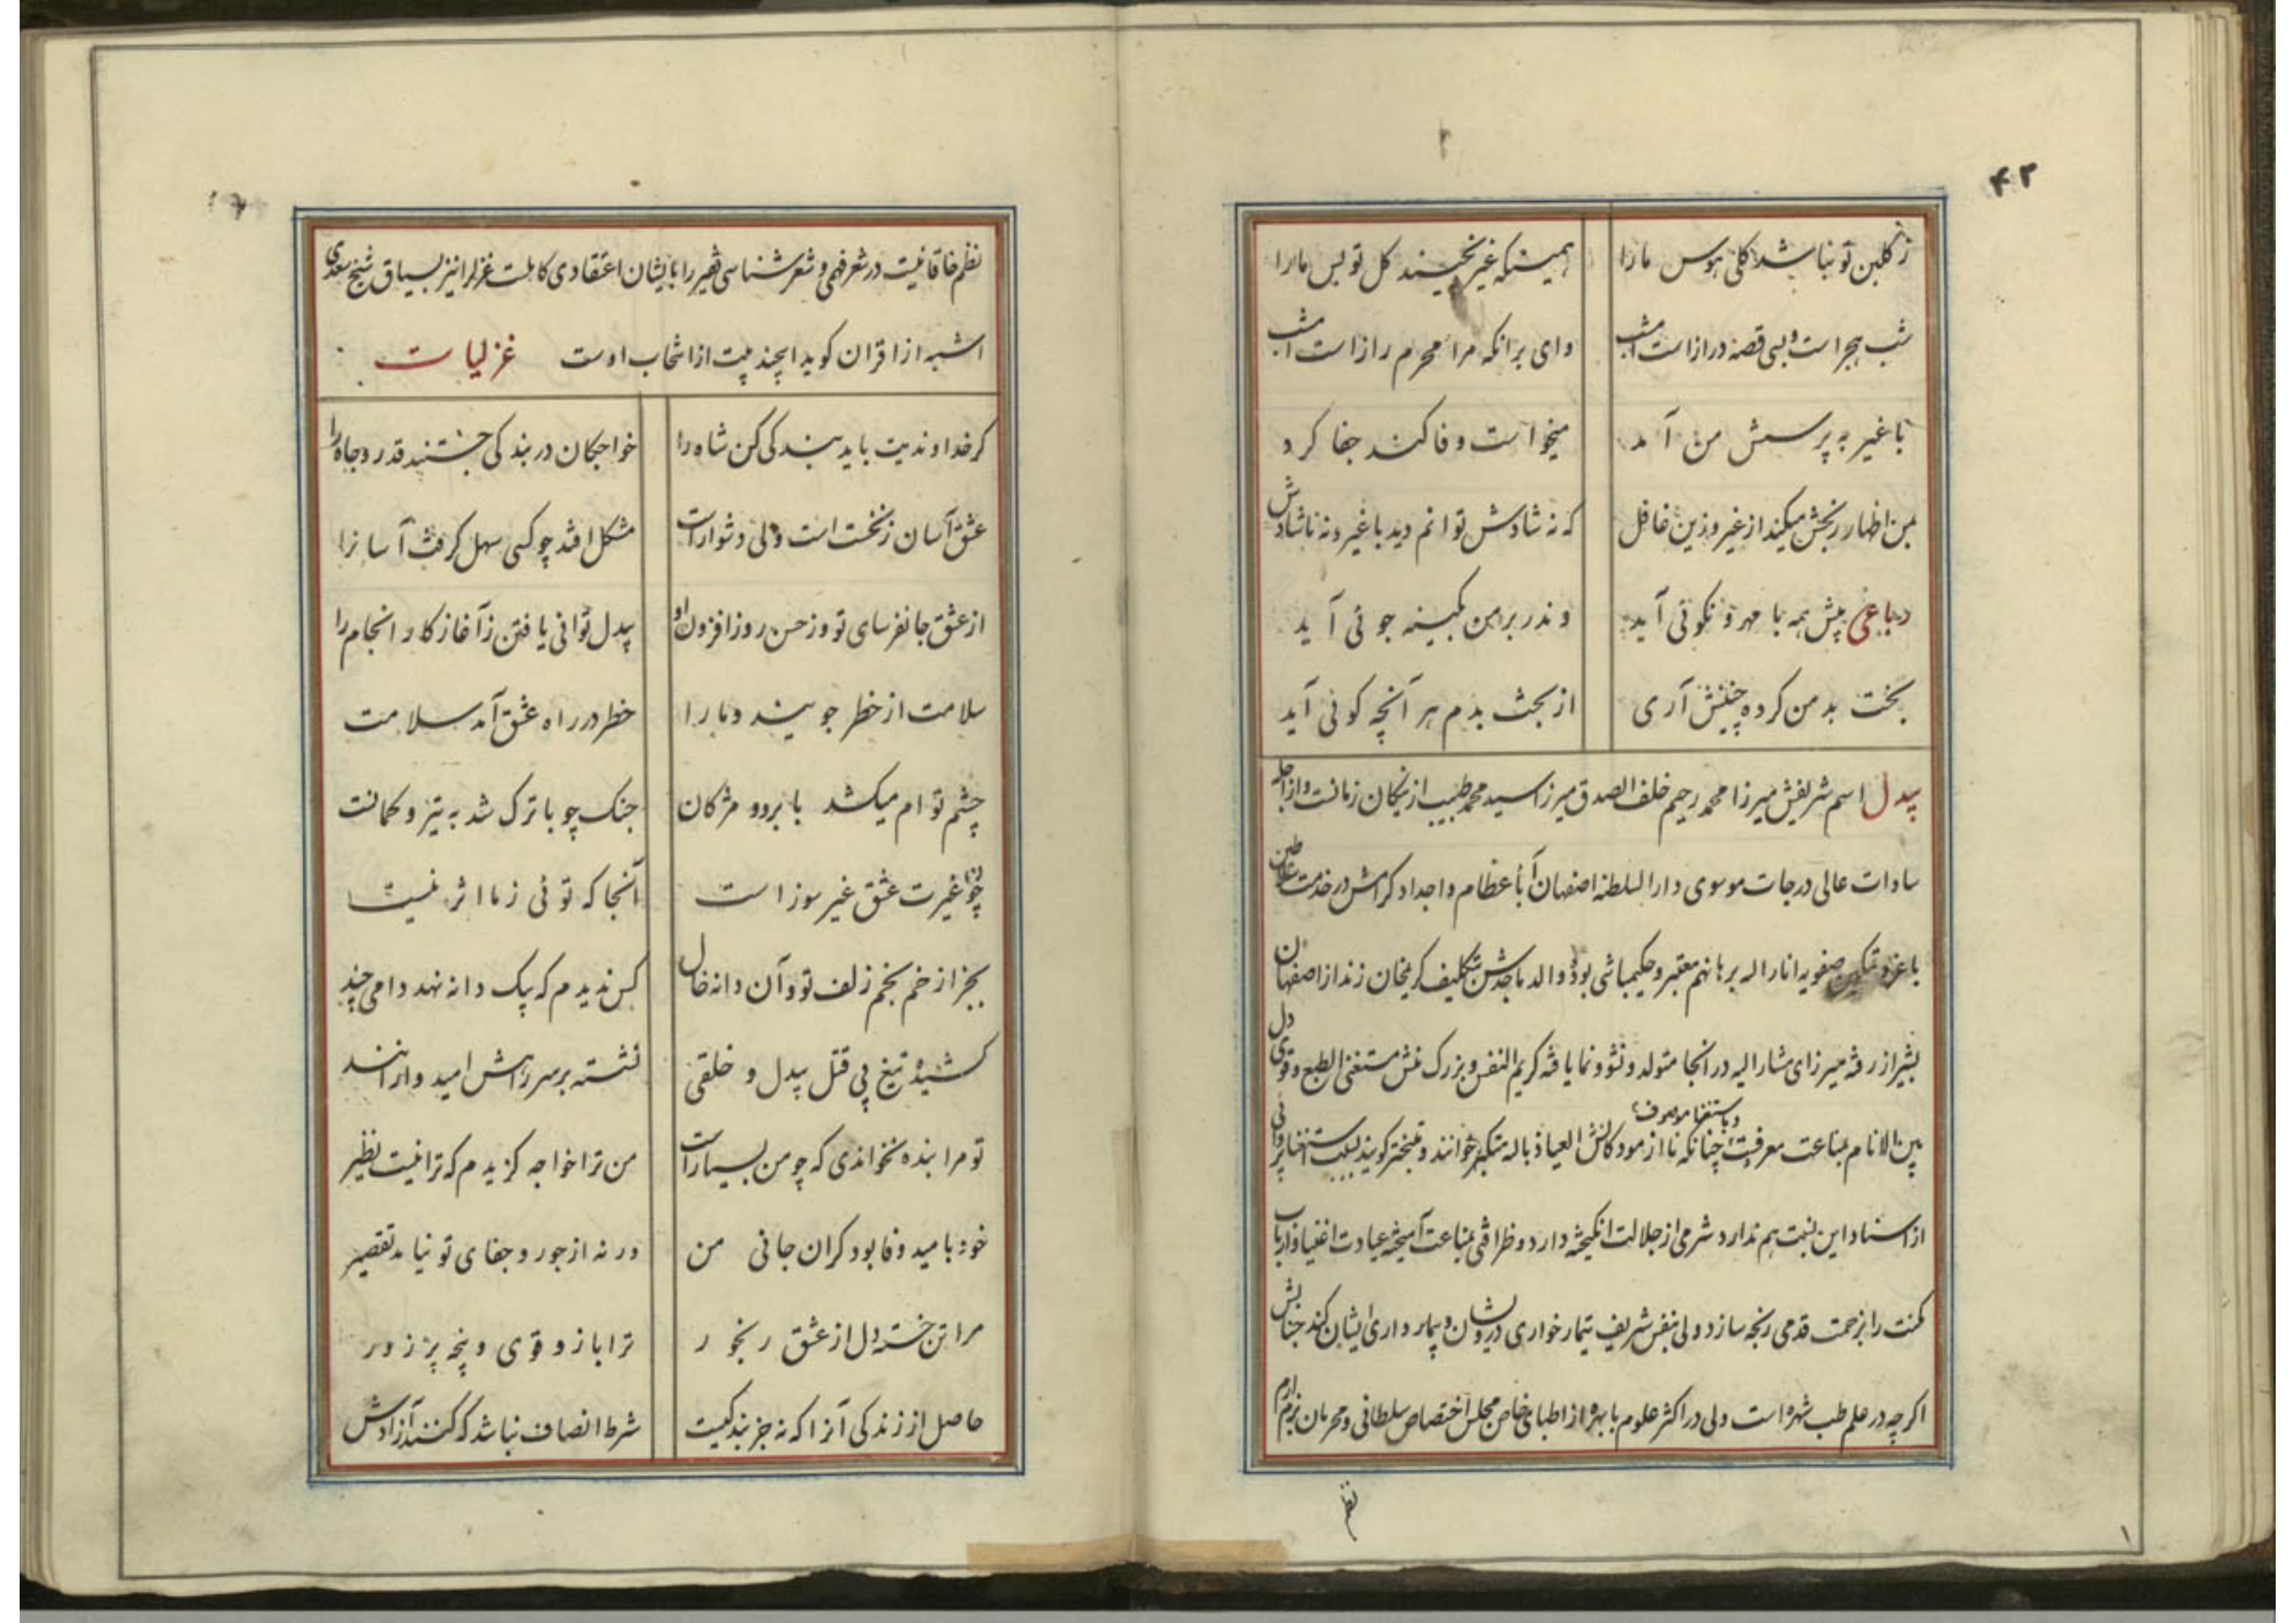 ۴۲
ز گلبن تو نباشد گلی هوس ما را همینکه غیر نچیند گل تو بس ما را
شب هجر است و بسی قصه دراز است امشب وای بر آنکه مرا محرم راز است امشب
با غیر به پرسش من آمد میخواست وفا کند جفا کرد
بمن اظهار رنجش میکند از غیر و زین غافل که نه شادش توانم دید با غیر و نه ناشادش
رباعی پیش همه با مهر و نکوئی آید وندر بر من کینه جوئی آید
بخت بد من کرده چنینش آری از بخت بدم هر آنچه گوئی آید
بیدل اسم شریفش میرزا محمد رحیم خلف الصدق میرزا سید محمد طبیب از نیکان زمانست و از اجله
سادات عالی درجات موسوی دار السلطنه اصفهان آباء عظام و اجداد کرامش در خدمت سلاطین
با عز و تمکین صفویه انار اله برهانهم معتبر و حکیمباشی بوده والد ماجدش بتکلیف کریمخان زند از اصفهان
بشیراز رفته میرزای مشار الیه در آنجا متولد و نشو و نما یافته کریم النفس و بزرگ منش مستغنی الطبع و قوی دل
بین الانام بمناعت معروفیت و باستغنا موصوف چنانکه ناآزمودگانش العیاذ باله متکبر خوانند و متبختر گویند
از اسناد این نسبت هم ندارد شرمی از جلالت انگیخته دارد و ظرافتی بمناعت آمیخته عیادت اغنیا و ارباب
مکنت را بزحمت قدمی رنجه سازد ولی بنفس شریف تیمار خواری درویشان و بیمار داری ایشان کند جنابش
اگر چه در علم طب شهره است ولی در اکثر علوم با بهره از اطبای خاص مجلس اختصاص سلطانی و محرمان بزم ارم
نظم
نظم خاقانیست در شعر فهمی و شعر شناسی فقیر را بایشان اعتقادی کاملست غزلرا نیز بسیاق شیخ سعدی
اشبه از اقران گوید این چند بیت از انتخاب اوست غزلیات
گر خداوندیت باید بندگی کن شاه را خواجگان در بندگی جستند قدر و جاه را
عشق آسان ز نخست است ولی دشوار است مشکل افتد چو کسی سهل گرفت آسانرا
از عشق جانفرسای تو وز حسن روز افزون او بیدل توانی یافتن ز آغاز کار انجام را
سلامت از خطر جویند و ما را خطر در راه عشق آمد سلامت
چشم توام میکشد بابرو و مژگان جنگ چو با ترک شد به تیر و کمانست
چون غیرت عشق غیر سوز است آنجا که توئی ز ما اثر نیست
بجز از خم بخم زلف تو و آن دانه خال کس ندیدم که بیک دانه نهد دامی چند
کشیده تیغ پی قتل بیدل و خلقی نشسته بر سر راهش امیدوارانند
تو مرا بنده نخواندی که چو من بسیار است من ترا خواجه گزیدم که ترا نیست نظیر
خود بامید وفا بود گران جانی من ور نه از جور و جفای تو نیامد تقصیر
مرا تن خسته دل از عشق رنجور ترا بازو قوی و پنجه پر زور
حاصل از زندگی آنرا که نه جز بندگیست شرط انصاف نباشد که کنند آزادش